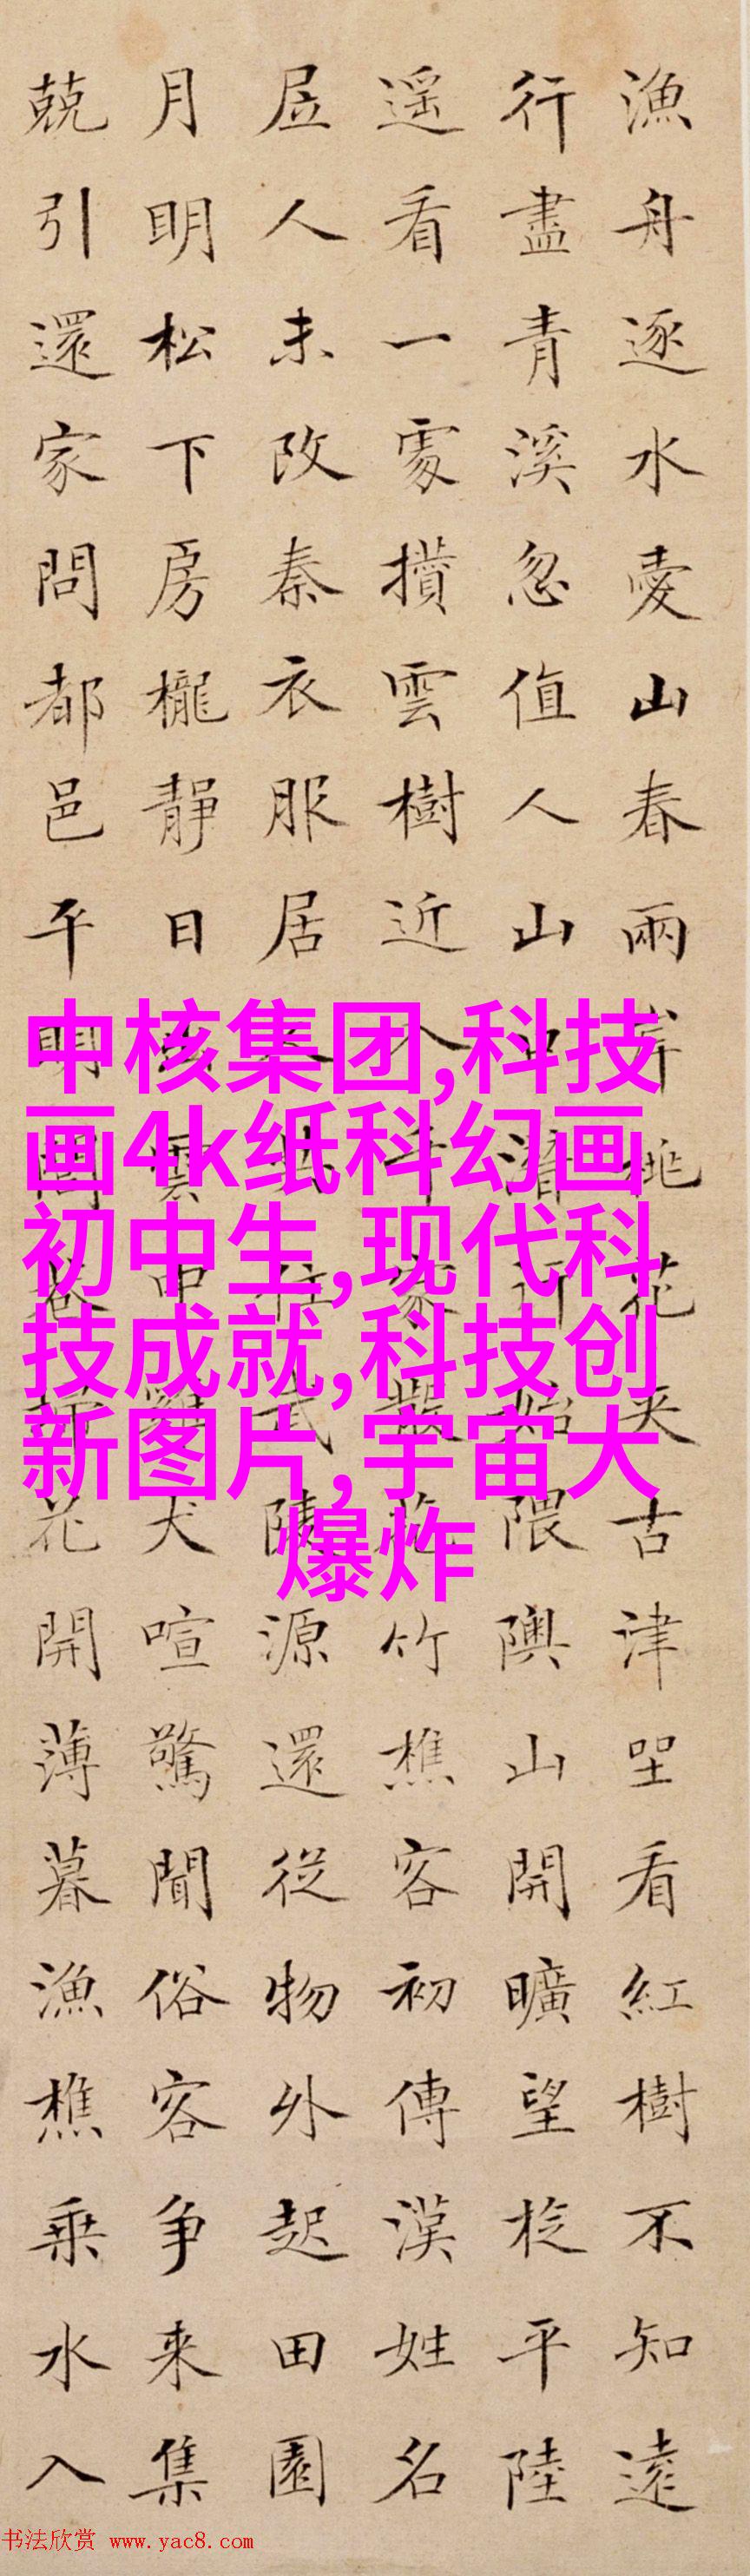 漁舟逐水愛山春兩岸桃花夾古津坐看紅樹不知遠
行盡青溪忽值人山口潛行始隈隩山開曠望旋平陸
遥看一處攢雲樹近入千家散花竹樵客初傳漢姓名
居人未改秦衣服居人共住武陵源還從物外起田園
月明松下房櫳靜日出雲中雞犬喧驚聞俗客争来集
競引還家問都邑平明閭巷掃花開薄暮漁樵乘水入
中核集团,科技
画4k纸科幻画
初中生,现代科
技成就,科技创
新图片,宇宙大
爆炸
书法欣赏 www.yac8.com